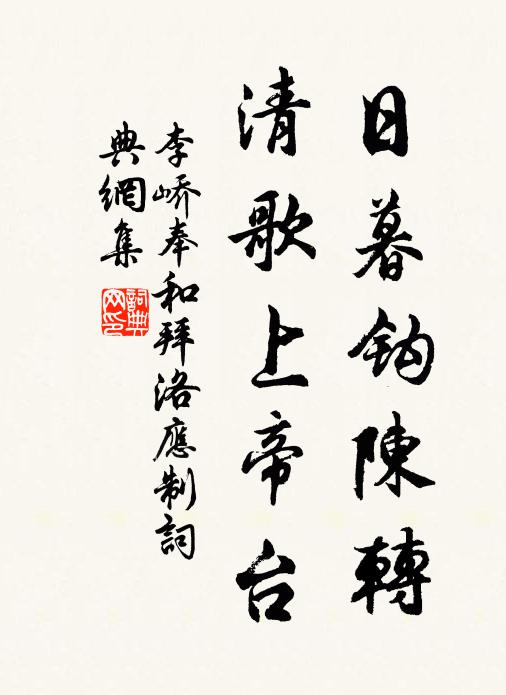 日暮鈎陳轉
清歌上帝台
李嶠奉和拜洛應制詞
典網集
詞典
网印